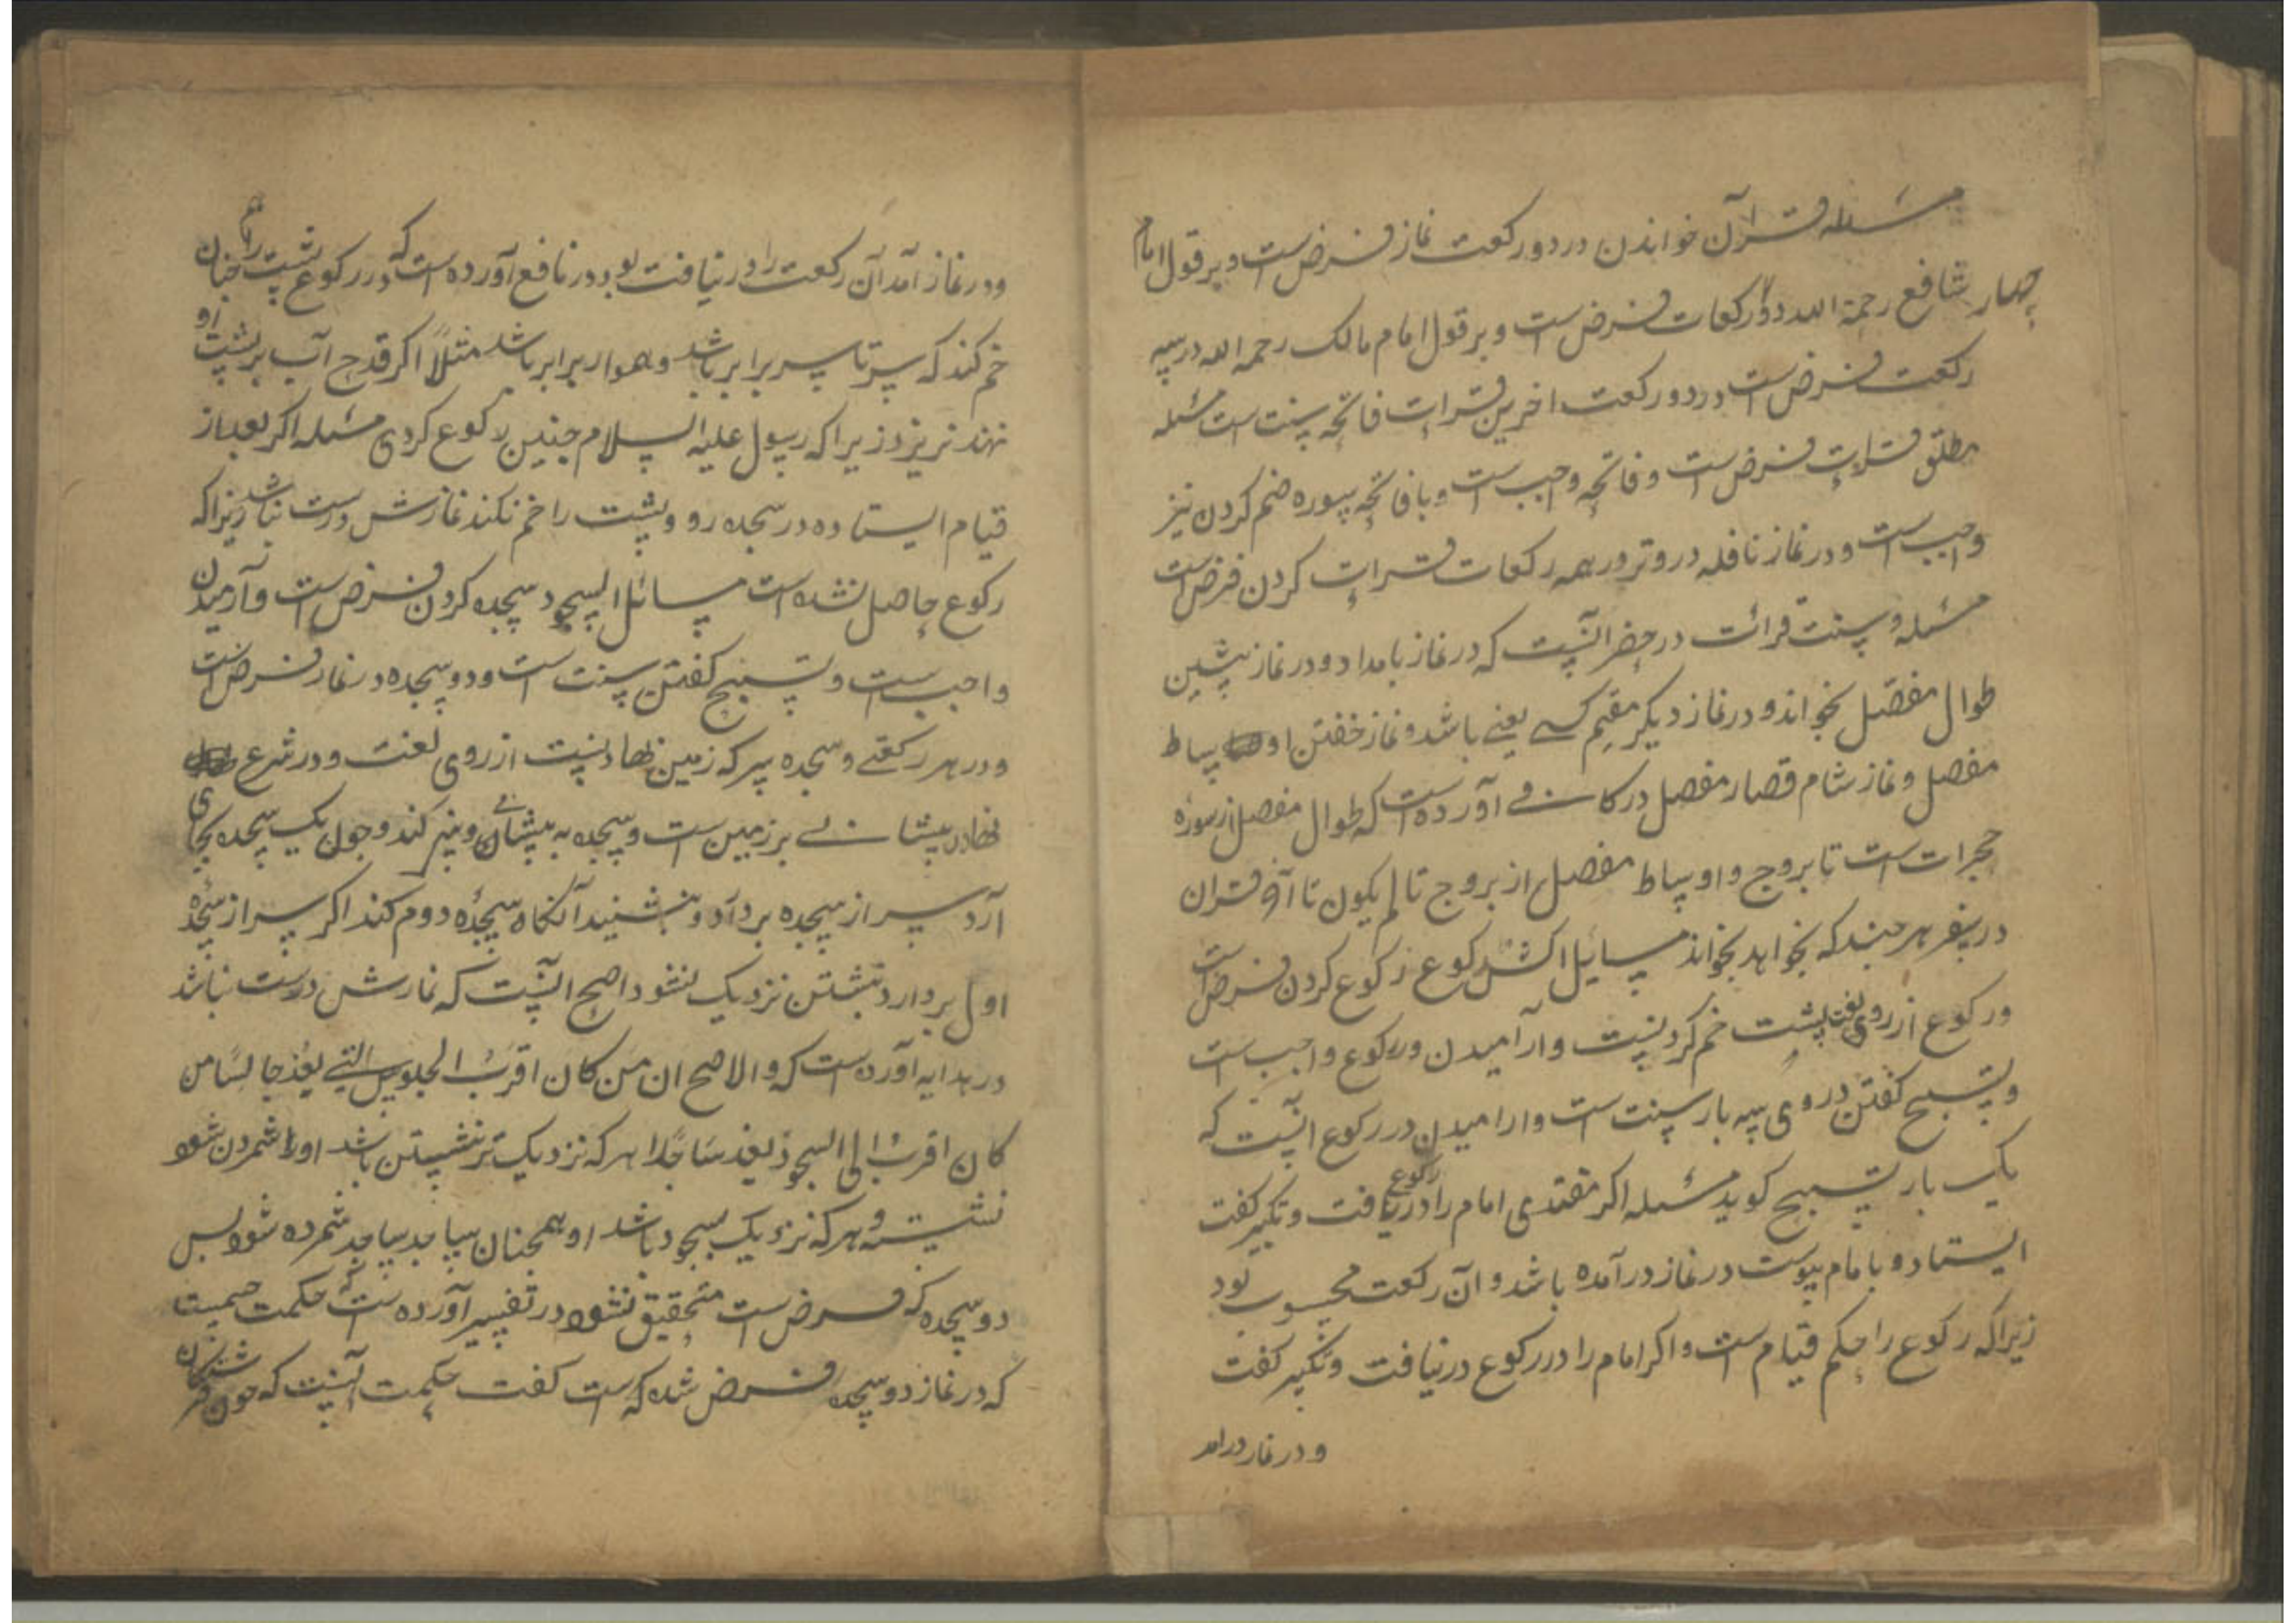 مسئله قرآن خواندن در دو رکعت نماز فرض است و بر قول امام
شافع رحمة الله در چهار رکعات فرض است و بر قول امام مالک رحمه الله در سه
رکعت فرض است در دو رکعت اخرین قرات فاتحه سنت است مسئله
مطلق قرات فرض است و فاتحه واجب است و با فاتحه سوره ضم کردن نیز
واجب است و در نماز نافله در وتر در همه رکعات قرات کردن فرض است
مسئله و سنت قرائت در حضر انست که در نماز بامداد و در نماز پیشین
طوال مفصّل بخواند و در نماز دیکر مقیم کسی یعنی باشد و نماز خفتن اوساط
مفصل و نماز شام قصار مفصل در کافی آورده است که طوال مفصل از سوره
حجرات است تا بروج و اوساط مفصل از بروج تا لم یکون تا آخر قران
در سفر هر چند که بخواهد بخواند مسایل الرکوع رکوع کردن فرض است
و رکوع از روی لغت پشت خم کردنست و آرامیدن در رکوع واجب است
و تسبیح کفتن در وی سه بار سنت است و ارامیدن در رکوع انست که
یک بار تسبیح کوید مسئله اکر مقتدی امام را در رکوع یافت و تکبیر کفت
ایستاد و با امام پیوست در نماز در آمده باشد و آن رکعت محسوب بود
زیرا که رکوع را حکم قیام است و اکر امام را در رکوع در نیافت و تکبیر کفت
و در نماز درامد
و در نماز آمد آن رکعت را در نیافت بود در نافع آورده است که در رکوع پشت را چنان
خم کند که سر تا سر برابر باشد و هموار برابر باشد مثلاً اکر قدح آب بر پشت او
نهند نریزد زیرا که رسول علیه السلام چنین رکوع کردی مسئله اکر بعد از
قیام ایستاده در سجده رود و پشت را خم نکند نمازش درست نباشد زیرا که
رکوع حاصل نشده است مسائل السجود سجده کردن فرض است و آرمیدن
واجب است و تسبیح کفتن سنت است و دو سجده در نماز فرض است
و در هر رکعتی و سجده سر که زمین نهادنست از روی لعنت و در شرع
نهادن پیشانی بر زمین است و سجده به پیشانی و بینی کند و چون یک سجده بجای
آرد سر از سجده بردارد و بنشیند آنکاه سجدۀ دوم کند اکر سر از سجده
اول بردارد و نبشتن نزدیک نشود اصح انست که نمازش درست نباشد
در هدایه آورده است که و الاصح ان من کان اقرب الجلوس التی یعد جالسا من
کان اقرب الی السجود یعد ساجدا هر که نزدیک تر نشستن باشد اورا شمردن شود
نشسته و هر که نزدیک سجود باشد او همچنان ساجد شمرده شود پس
دو سجده که فرض است متحقیق نشود در تفسیر آورده است که حکمت چیست
که در نماز دو سجده فرض شده که است کفت حکمت آنست که چون فرشتکان